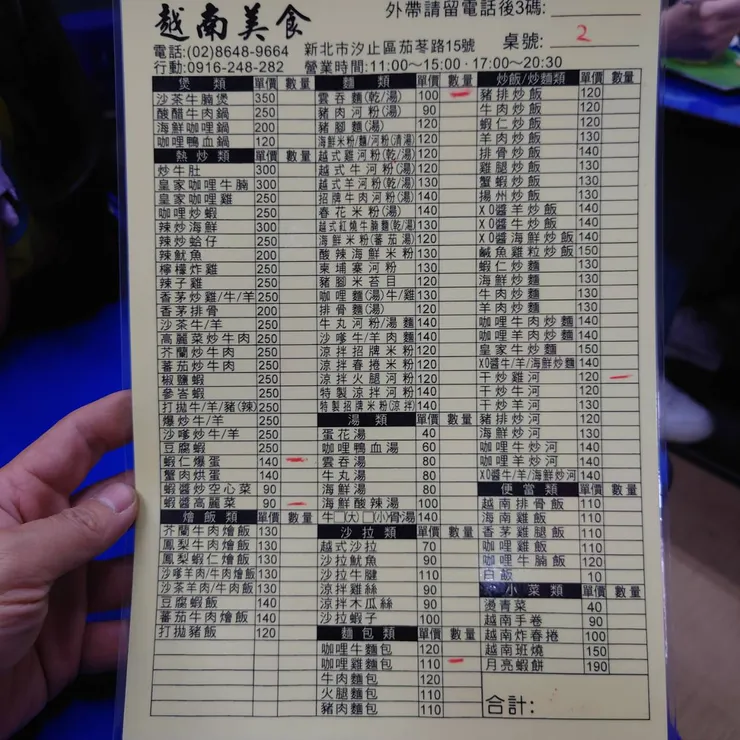 越南美食
外帶請留電話後3碼:
電話:(02)8648-9664 新北市汐止區茄苳路15號 桌號: 2
行動:0916-248-282 營業時間:11:00~15:00‧17:00~20:30
煲類 單價 數量
沙茶牛腩煲 350
酸醋牛肉鍋 200
海鮮咖哩鍋 200
咖哩鴨血鍋 120
熱炒類 單價 數量
炒牛肚 300
皇家咖哩牛腩 300
皇家咖哩雞 250
咖哩炒蝦 250
辣炒海鮮 300
辣炒蛤仔 250
辣魷魚 250
檸檬炸雞 250
辣子雞 250
香茅炒雞/牛/羊 250
香茅排骨 200
沙茶牛/羊 250
高麗菜炒牛肉 250
芥蘭炒牛肉 250
蕃茄炒牛肉 250
椒鹽蝦 250
參峇蝦 250
打拋牛/羊/豬(辣) 250
爆炒牛/羊 250
沙嗲炒牛/羊 250
豆腐蝦 250
蝦仁爆蛋 140
蟹肉烘蛋 140
蝦醬炒空心菜 90
蝦醬高麗菜 90
燴飯類 單價 數量
芥蘭牛肉燴飯 130
鳳梨牛肉燴飯 130
鳳梨蝦仁燴飯 130
沙嗲羊肉/牛肉燴飯 130
沙茶羊肉/牛肉飯 130
豆腐蝦飯 140
蕃茄牛肉燴飯 140
打拋豬飯 120
麵類 單價 數量
雲吞麵(乾/湯) 100
豬肉河粉(湯) 90
豬腳麵(湯) 120
海鮮米粉/麵/河粉(清湯) 120
越式雞河粉(乾/湯) 120
越式牛河粉(乾/湯) 120
越式羊河粉(乾/湯) 130
招牌牛肉河粉(湯) 140
春花米粉(湯) 140
越式紅燒牛腩麵(乾/湯) 130
海鮮米粉(蕃茄湯) 120
酸辣海鮮米粉 130
柬埔寨河粉 130
豬腳米苔目 120
咖哩麵(湯)牛/雞 130
排骨麵(湯) 120
牛丸河粉/湯麵 140
沙嗲牛/羊肉麵 140
涼拌招牌米粉 120
涼拌春捲米粉 120
涼拌火腿河粉 120
特製涼拌河粉 140
特製招牌米粉(涼拌) 140
湯類 單價 數量
蛋花湯 40
咖哩鴨血湯 60
雲吞湯 80
牛丸湯 80
海鮮湯 80
海鮮酸辣湯 100
牛□(大)□(小)骨湯 140
沙拉類 單價 數量
越式沙拉 70
沙拉魷魚 90
沙拉牛腱 110
涼拌雞絲 90
涼拌木瓜絲 90
沙拉蝦子 100
麵包類 單價 數量
咖哩牛麵包 120
咖哩雞麵包 110
牛肉麵包 120
火腿麵包 110
豬肉麵包 110
炒飯/炒麵類 單價 數量
豬排炒飯 120
牛肉炒飯 120
蝦仁炒飯 120
羊肉炒飯 130
排骨炒飯 140
雞腿炒飯 130
蟹蝦炒飯 130
揚州炒飯 130
XO醬羊炒飯 140
XO醬牛炒飯 140
XO醬海鮮炒飯 140
鹹魚雞粒炒飯 150
蝦仁炒麵 130
海鮮炒麵 130
牛肉炒麵 130
羊肉炒麵 130
咖哩牛肉炒麵 140
咖哩羊肉炒麵 140
皇家牛炒麵 150
XO醬牛/羊/海鮮炒麵 140
干炒雞河 120
干炒牛河 120
干炒羊河 130
豬排炒河 120
海鮮炒河 130
咖哩牛炒河 140
咖哩羊炒河 140
XO醬牛/羊/海鮮炒河 140
便當類 單價 數量
越南排骨飯 110
海南雞飯 110
香茅雞腿飯 110
咖哩雞飯 110
咖哩牛腩飯 120
白飯 10
小菜類 單價 數量
燙青菜 40
越南手卷 90
越南炸春捲 100
越南班燒 150
月亮蝦餅 190
合計: